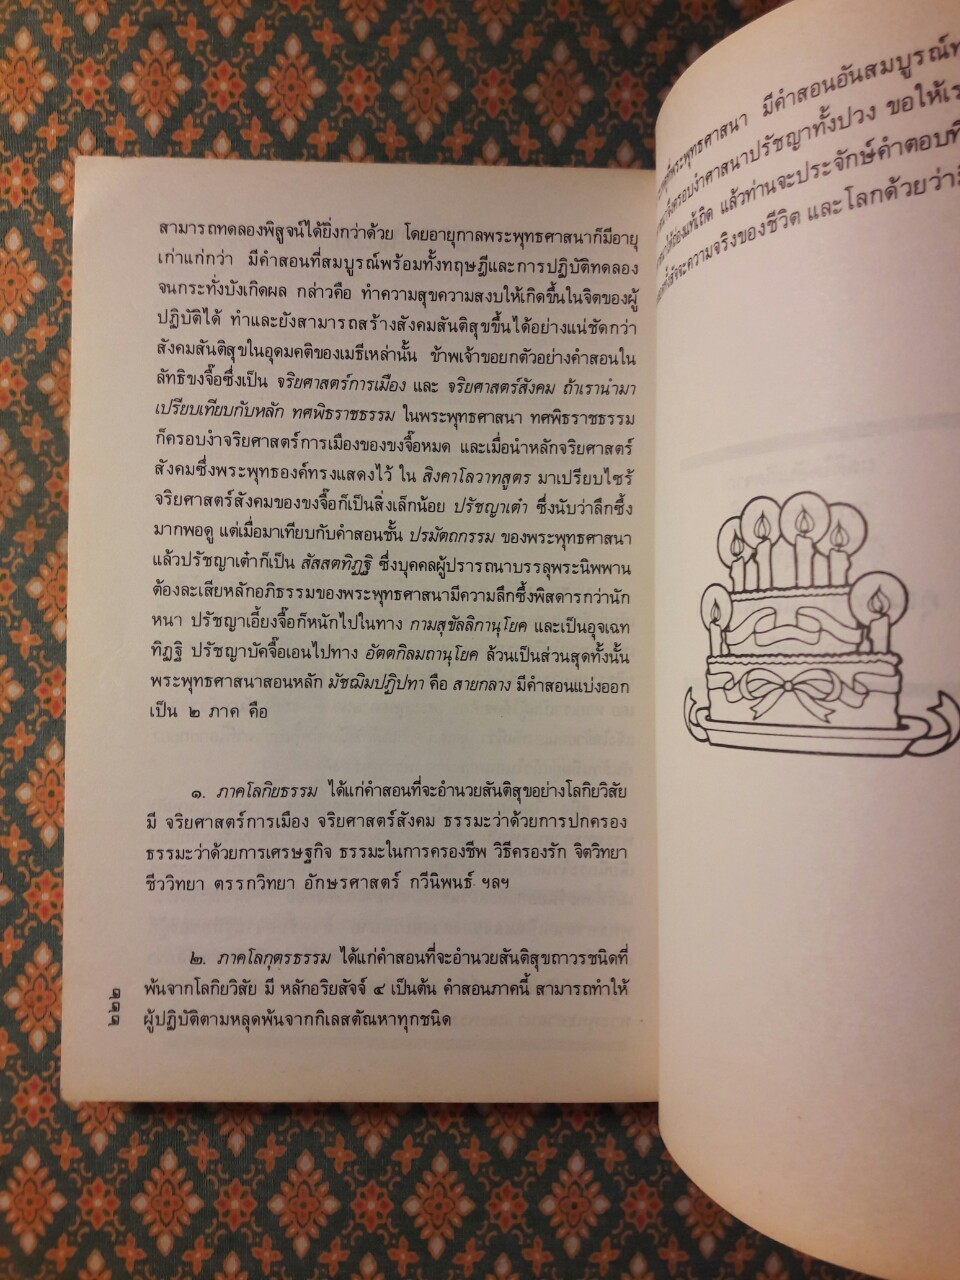 สามารถทดลองพิสูจน์ได้ยิ่งกว่าด้วย โดยอายุกาลพระพุทธศาสนาก็มีอายุ
เก่าแก่กว่า มีคำสอนที่สมบูรณ์พร้อมทั้งทฤษฎีและการปฏิบัติทดลอง
จนกระทั่งบังเกิดผล กล่าวคือ ทำความสุขความสงบให้เกิดขึ้นในจิตของผู้
ปฏิบัติได้ ทำและยังสามารถสร้างสังคมสันติสุขขึ้นได้อย่างแน่ชัดกว่า
สังคมสันติสุขในอุดมคติของเมธีเหล่านั้น ข้าพเจ้าขอยกตัวอย่างคำสอนใน
ลัทธิขงจื๊อซึ่งเป็น จริยศาสตร์การเมือง และ จริยศาสตร์สังคม ถ้าเรานำมา
เปรียบเทียบกับหลัก ทศพิธราชธรรม ในพระพุทธศาสนา ทศพิธราชธรรม
ก็ครอบงำจริยศาสตร์การเมืองของขงจื๊อหมด และเมื่อนำหลักจริยศาสตร์
สังคมซึ่งพระพุทธองค์ทรงแสดงไว้ ใน สิงคาโลวาทสูตร มาเปรียบไซร้
จริยศาสตร์สังคมของขงจื๊อก็เป็นสิ่งเล็กน้อย ปรัชญาเต๋า ซึ่งนับว่าลึกซึ้ง
มากพอดู แต่เมื่อมาเทียบกับคำสอนชั้น ปรมัตถกรรม ของพระพุทธศาสนา
แล้วปรัชญาเต๋าก็เป็น สัสสตทิฏฐิ ซึ่งบุคคลผู้ปรารถนาบรรลุพระนิพพาน
ต้องละเสียหลักอภิธรรมของพระพุทธศาสนามีความลึกซึ้งพิสดารกว่านัก
หนา ปรัชญาเอี้ยงจื๊อก็หนักไปในทาง กามสุขัลลิกานุโยค และเป็นอุจเฉท
ทิฏฐิ ปรัชญาบัคจื๊อเอนไปทาง อัตตกิลมถานุโยค ล้วนเป็นส่วนสุดทั้งนั้น
พระพุทธศาสนาสอนหลัก มัชฌิมปฏิปทา คือ สายกลาง มีคำสอนแบ่งออก
เป็น ๒ ภาค คือ
๑. ภาคโลกิยธรรม ได้แก่คำสอนที่จะอำนวยสันติสุขอย่างโลกิยวิสัย
มี จริยศาสตร์การเมือง จริยศาสตร์สังคม ธรรมะว่าด้วยการปกครอง
ธรรมะว่าด้วยการเศรษฐกิจ ธรรมะในการครองชีพ วิธีครองรัก จิตวิทยา
ชีววิทยา ตรรกวิทยา อักษรศาสตร์ กวีนิพนธ์ ฯลฯ
๒. ภาคโลกุตรธรรม ได้แก่คำสอนที่จะอำนวยสันติสุขถาวรชนิดที่
พ้นจากโลกิยวิสัย มี หลักอริยสัจจ์ ๔ เป็นต้น คำสอนภาคนี้ สามารถทำให้
ผู้ปฏิบัติตามหลุดพ้นจากกิเลสตัณหาทุกชนิด
๒๒๒
พระพุทธศาสนา มีคำสอนอันสมบูรณ์
ครอบงำศาสนาปรัชญาทั้งปวง ขอให้
ถ่องแท้เถิด แล้วท่านจะประจักษ์คำตอบที่
สัจจะความจริงของชีวิต และโลกด้วยว่า